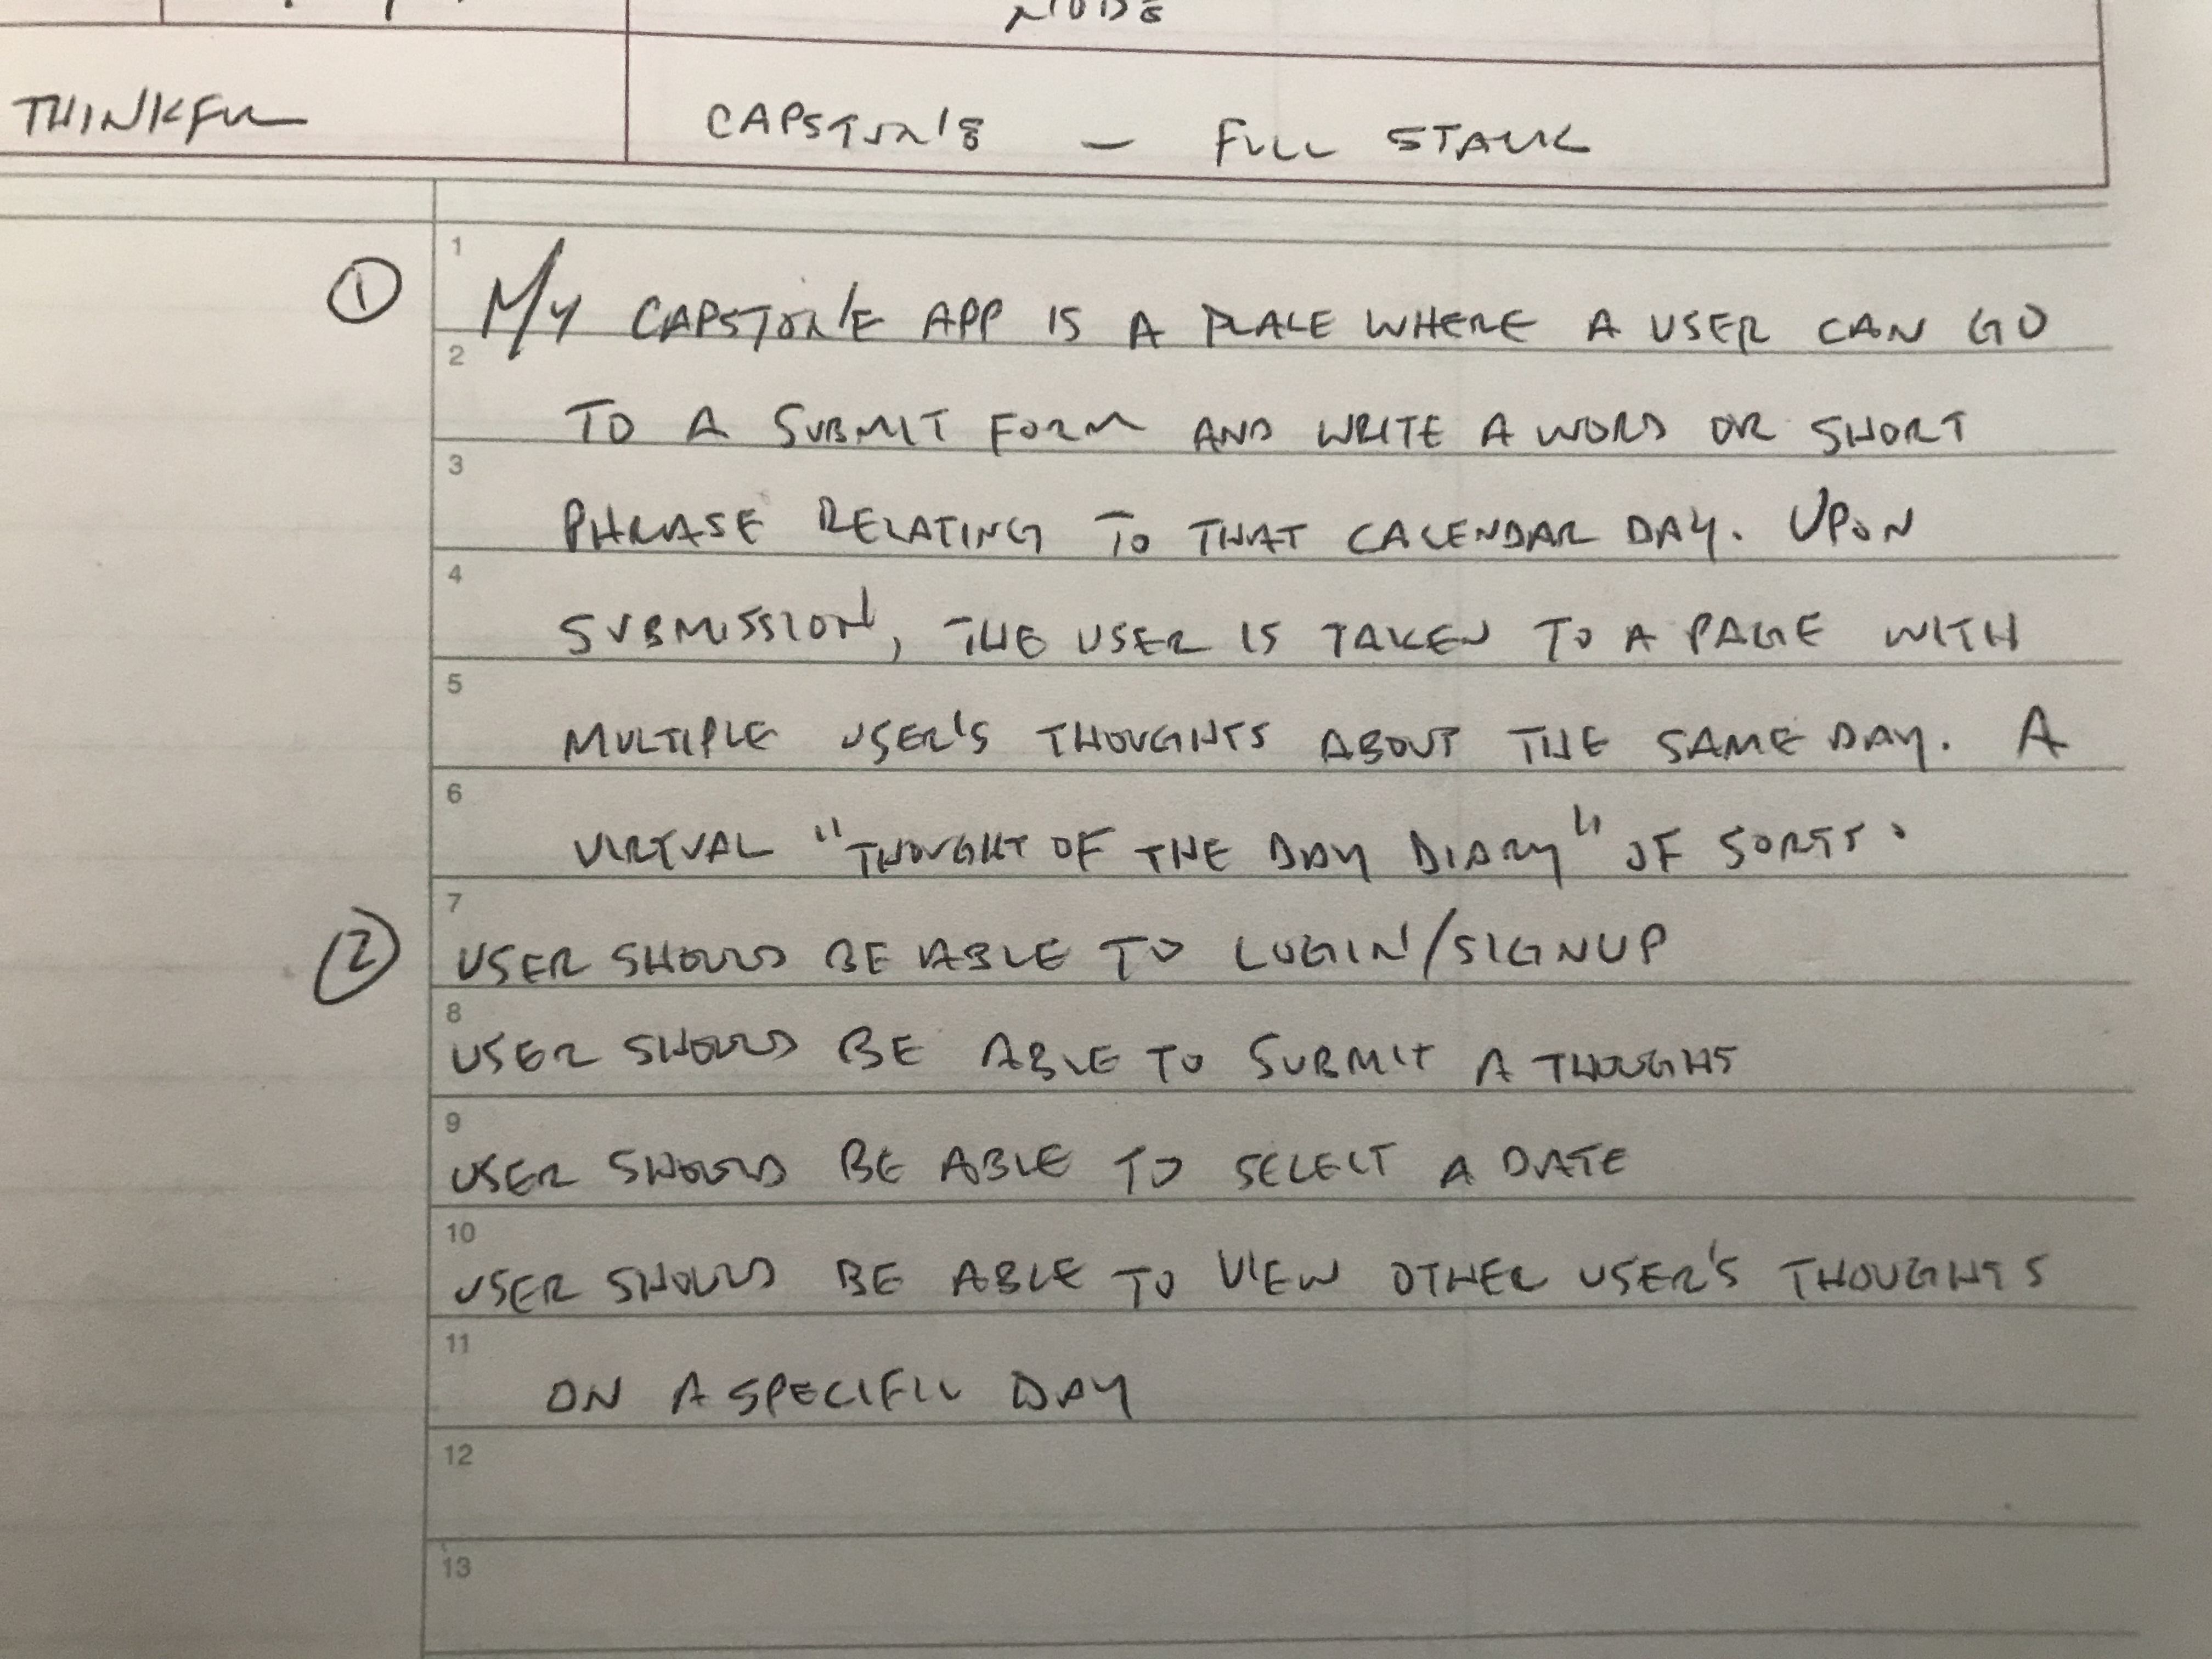 NODE
THINKFUL
CAPSTONE — FULL STACK
①
1
MY CAPSTONE APP IS A PLACE WHERE A USER CAN GO
2
TO A SUBMIT FORM AND WRITE A WORD OR SHORT
3
PHRASE RELATING TO THAT CALENDAR DAY. UPON
4
SUBMISSION, THE USER IS TAKEN TO A PAGE WITH
5
MULTIPLE USER'S THOUGHTS ABOUT THE SAME DAY. A
6
VIRTUAL "THOUGHT OF THE DAY DIARY" OF SORTS.
7
② USER SHOULD BE ABLE TO LOGIN/SIGNUP
8
USER SHOULD BE ABLE TO SUBMIT A THOUGHT
9
USER SHOULD BE ABLE TO SELECT A DATE
10
USER SHOULD BE ABLE TO VIEW OTHER USER'S THOUGHTS
11
ON A SPECIFIC DAY
12
13